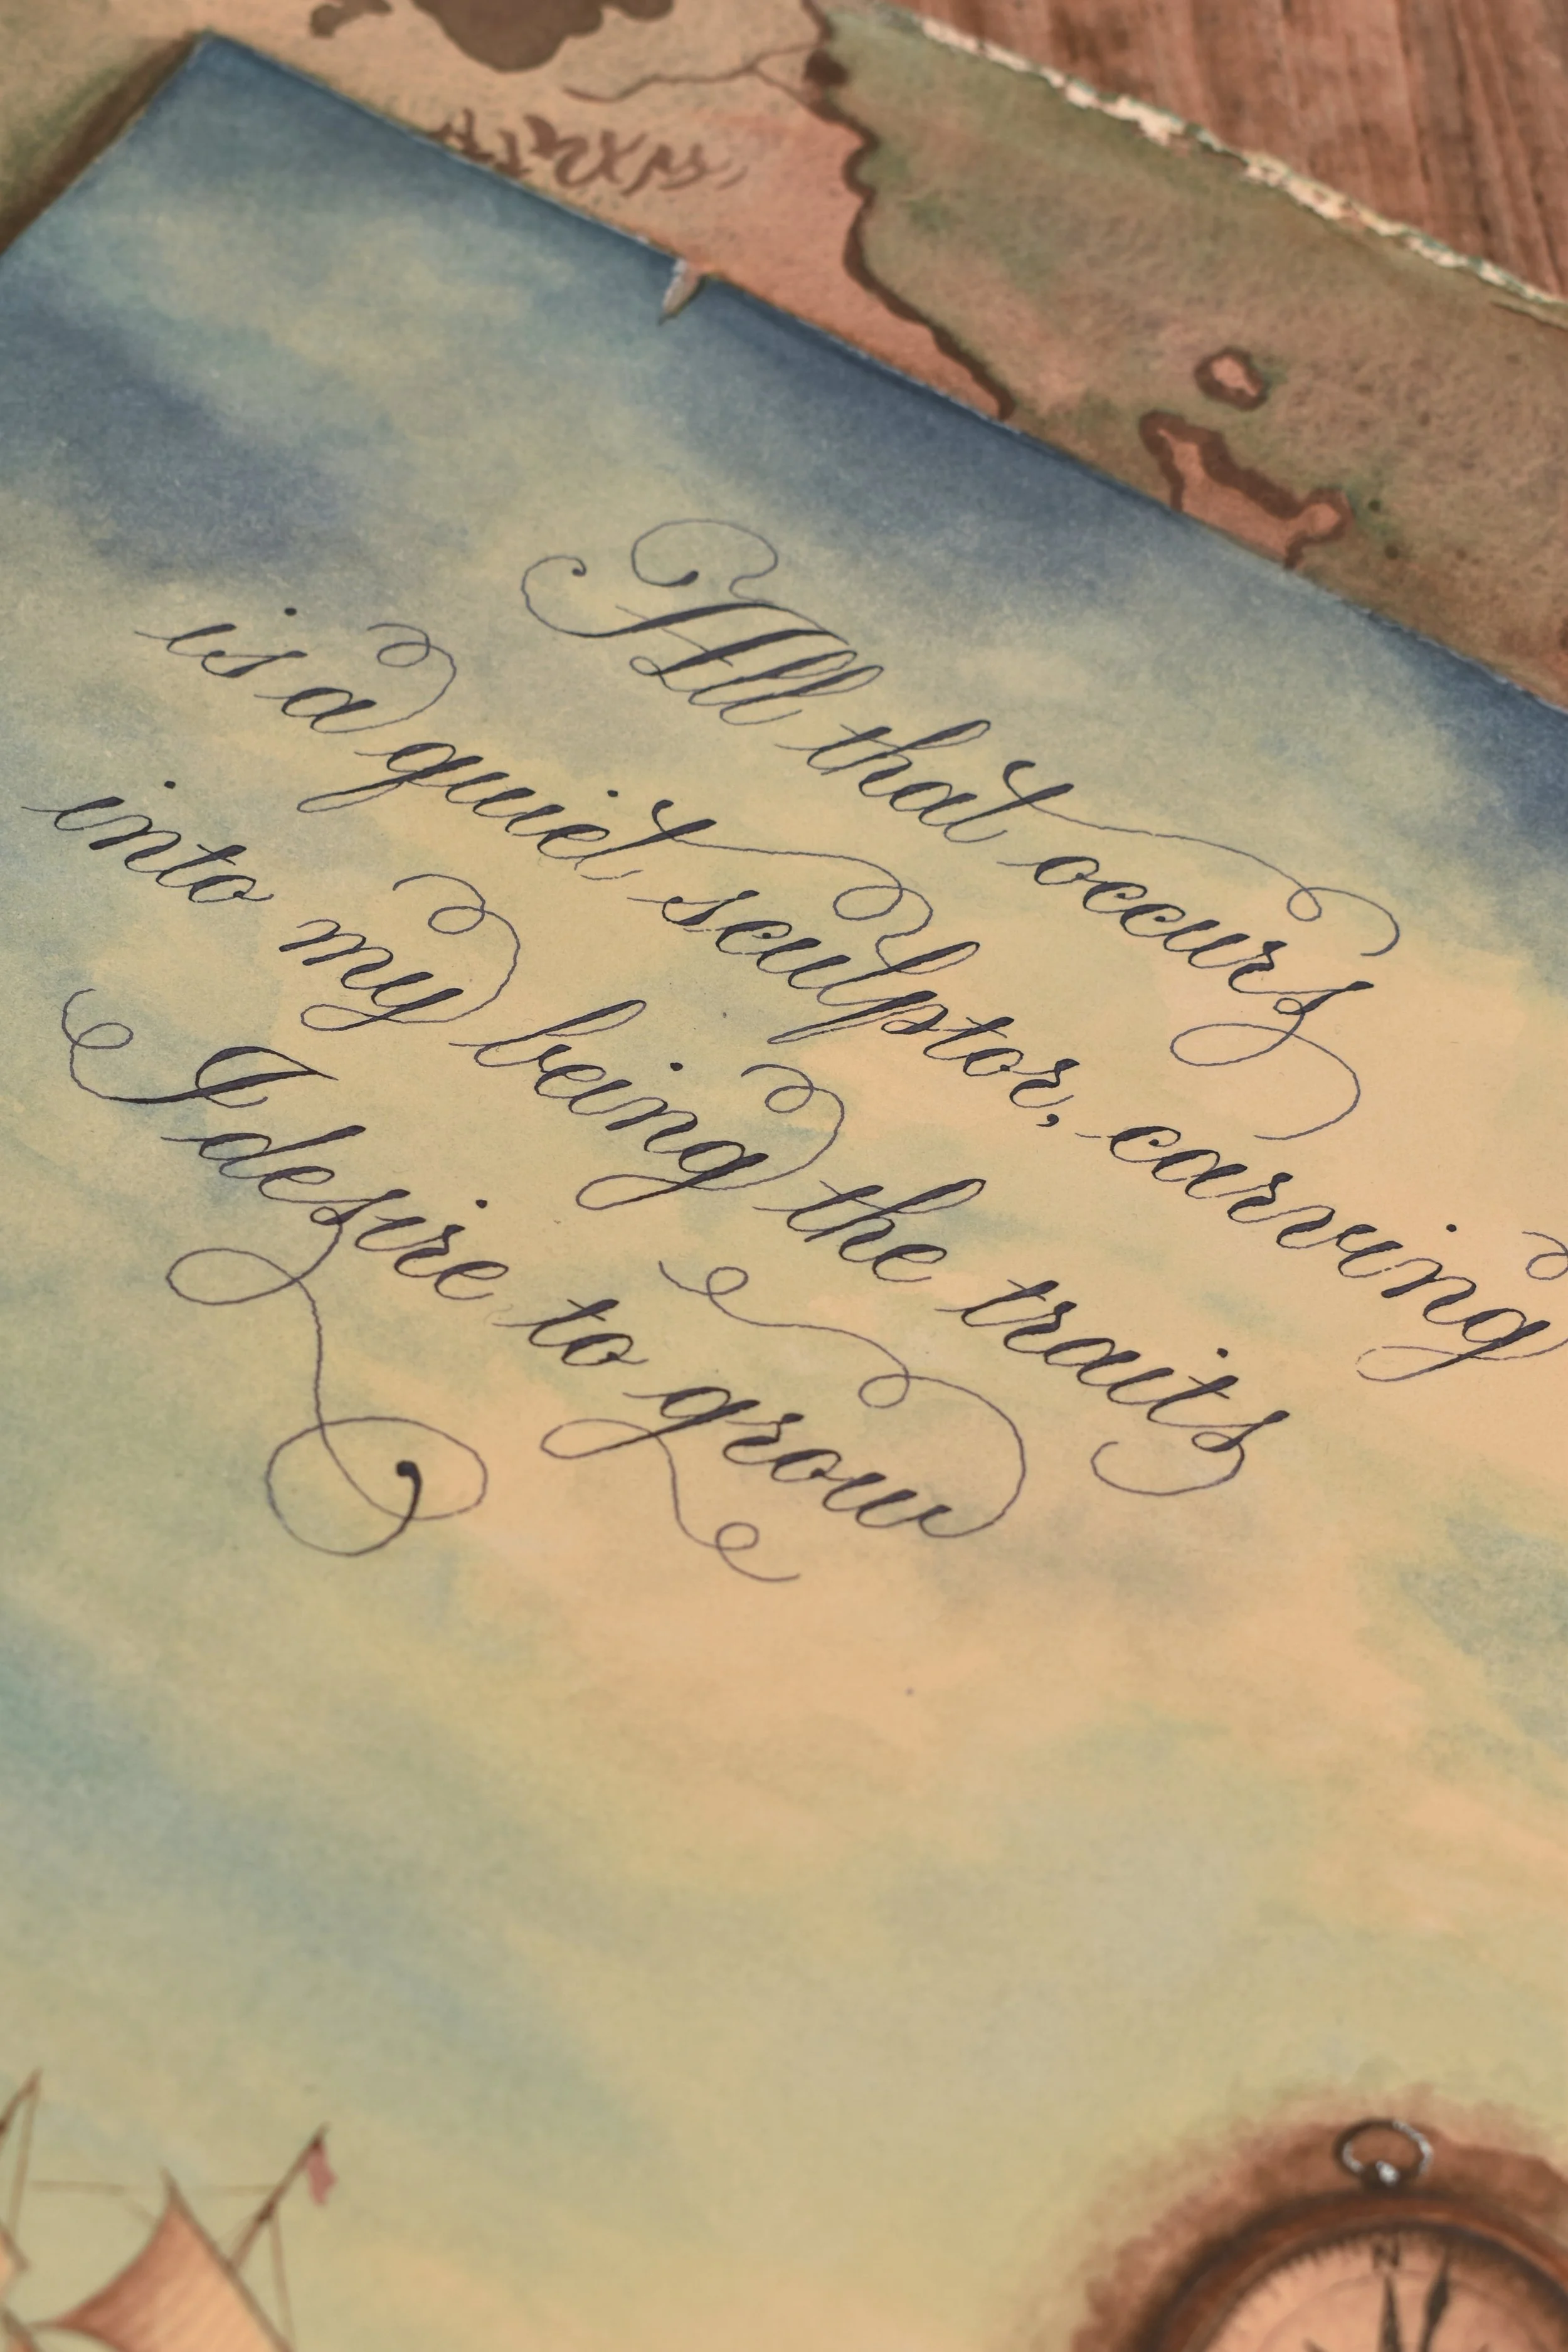 All that occurs
is a quiet sculptor, carving
into my being the traits
I desire to grow
N